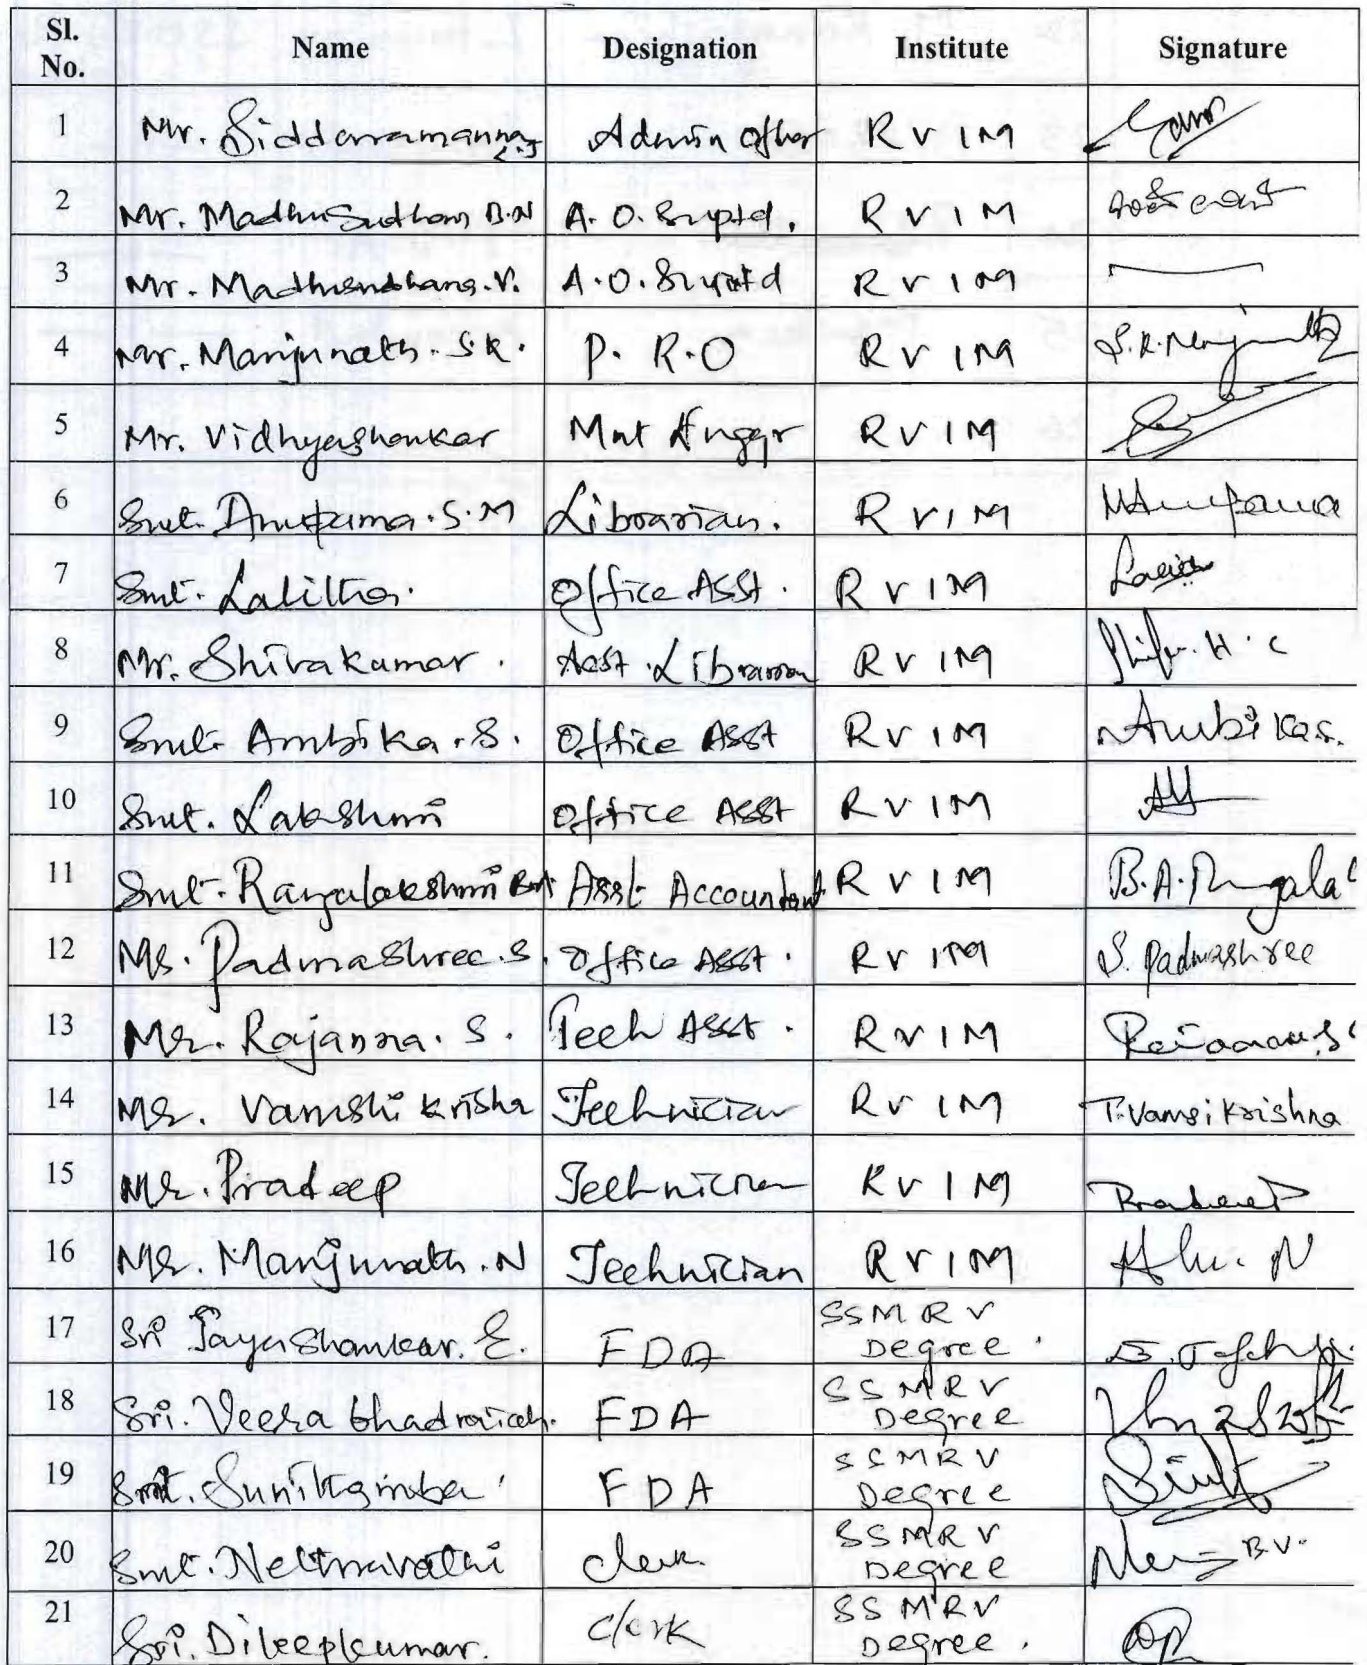 Sl. No. Name Designation Institute Signature
1 Mr. Siddaramanna Admin Officer R V I M
2 Mr. Madhusudhan B.N A. O. Suptd. R V I M
3 Mr. Madhusudhana. V. A.O. Suptd R V I M
4 Mr. Manjunath. S.R. P. R.O R V I M S.R. Manjunath
5 Mr. Vidhyashankar Mnt Enggr R V I M
6 Smt. Anupama. S.M Librarian. R V I M Anupama
7 Smt. Lalitha. Office Asst. R V I M
8 Mr. Shivakumar. Asst. Librarian R V I M
9 Smt. Ambika. S. Office Asst R V I M Ambika S.
10 Smt. Lakshmi Office Asst R V I M
11 Smt. Rangalakshmi Asst Accountant R V I M
12 Ms. Padmashree. S. Office Asst. R V I M S. Padmashree
13 Mr. Rajanna. S. Tech Asst. R V I M
14 Mr. Vamshi Krishna Technician R V I M T. Vamsi Krishna
15 Mr. Pradeep Technician R V I M Pradeep
16 Mr. Manjunath. N Technician R V I M
17 Sri Jayashankar. E. FDA SSMRV Degree.
18 Sri. Veerabhadraiah. FDA SSMRV Degree
19 Smt. FDA SSMRV Degree
20 Smt. Nethravathi Clerk SSMRV Degree B.V.
21 Sri. Dileepkumar. Clerk SSMRV Degree.